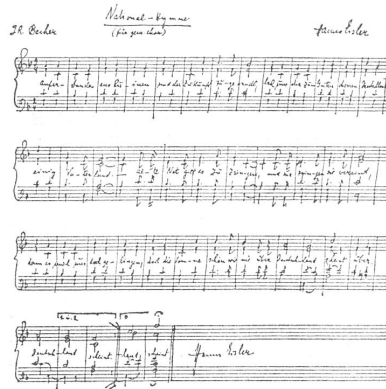 National-Hymne
J.R. Becher (für gem. Chor) Hanns Eisler
Aufer-standen aus Ruinen und der Zukunft zugewandt, laß uns dir zum Guten dienen, Deutschland
einig Vaterland. Alte Not gilt es zu zwingen, und wir zwingen sie vereint,
denn es muß uns doch gelingen, daß die Sonne schön wie nie über Deutschland scheint über
Deutschland scheint -land scheint Hanns Eisler